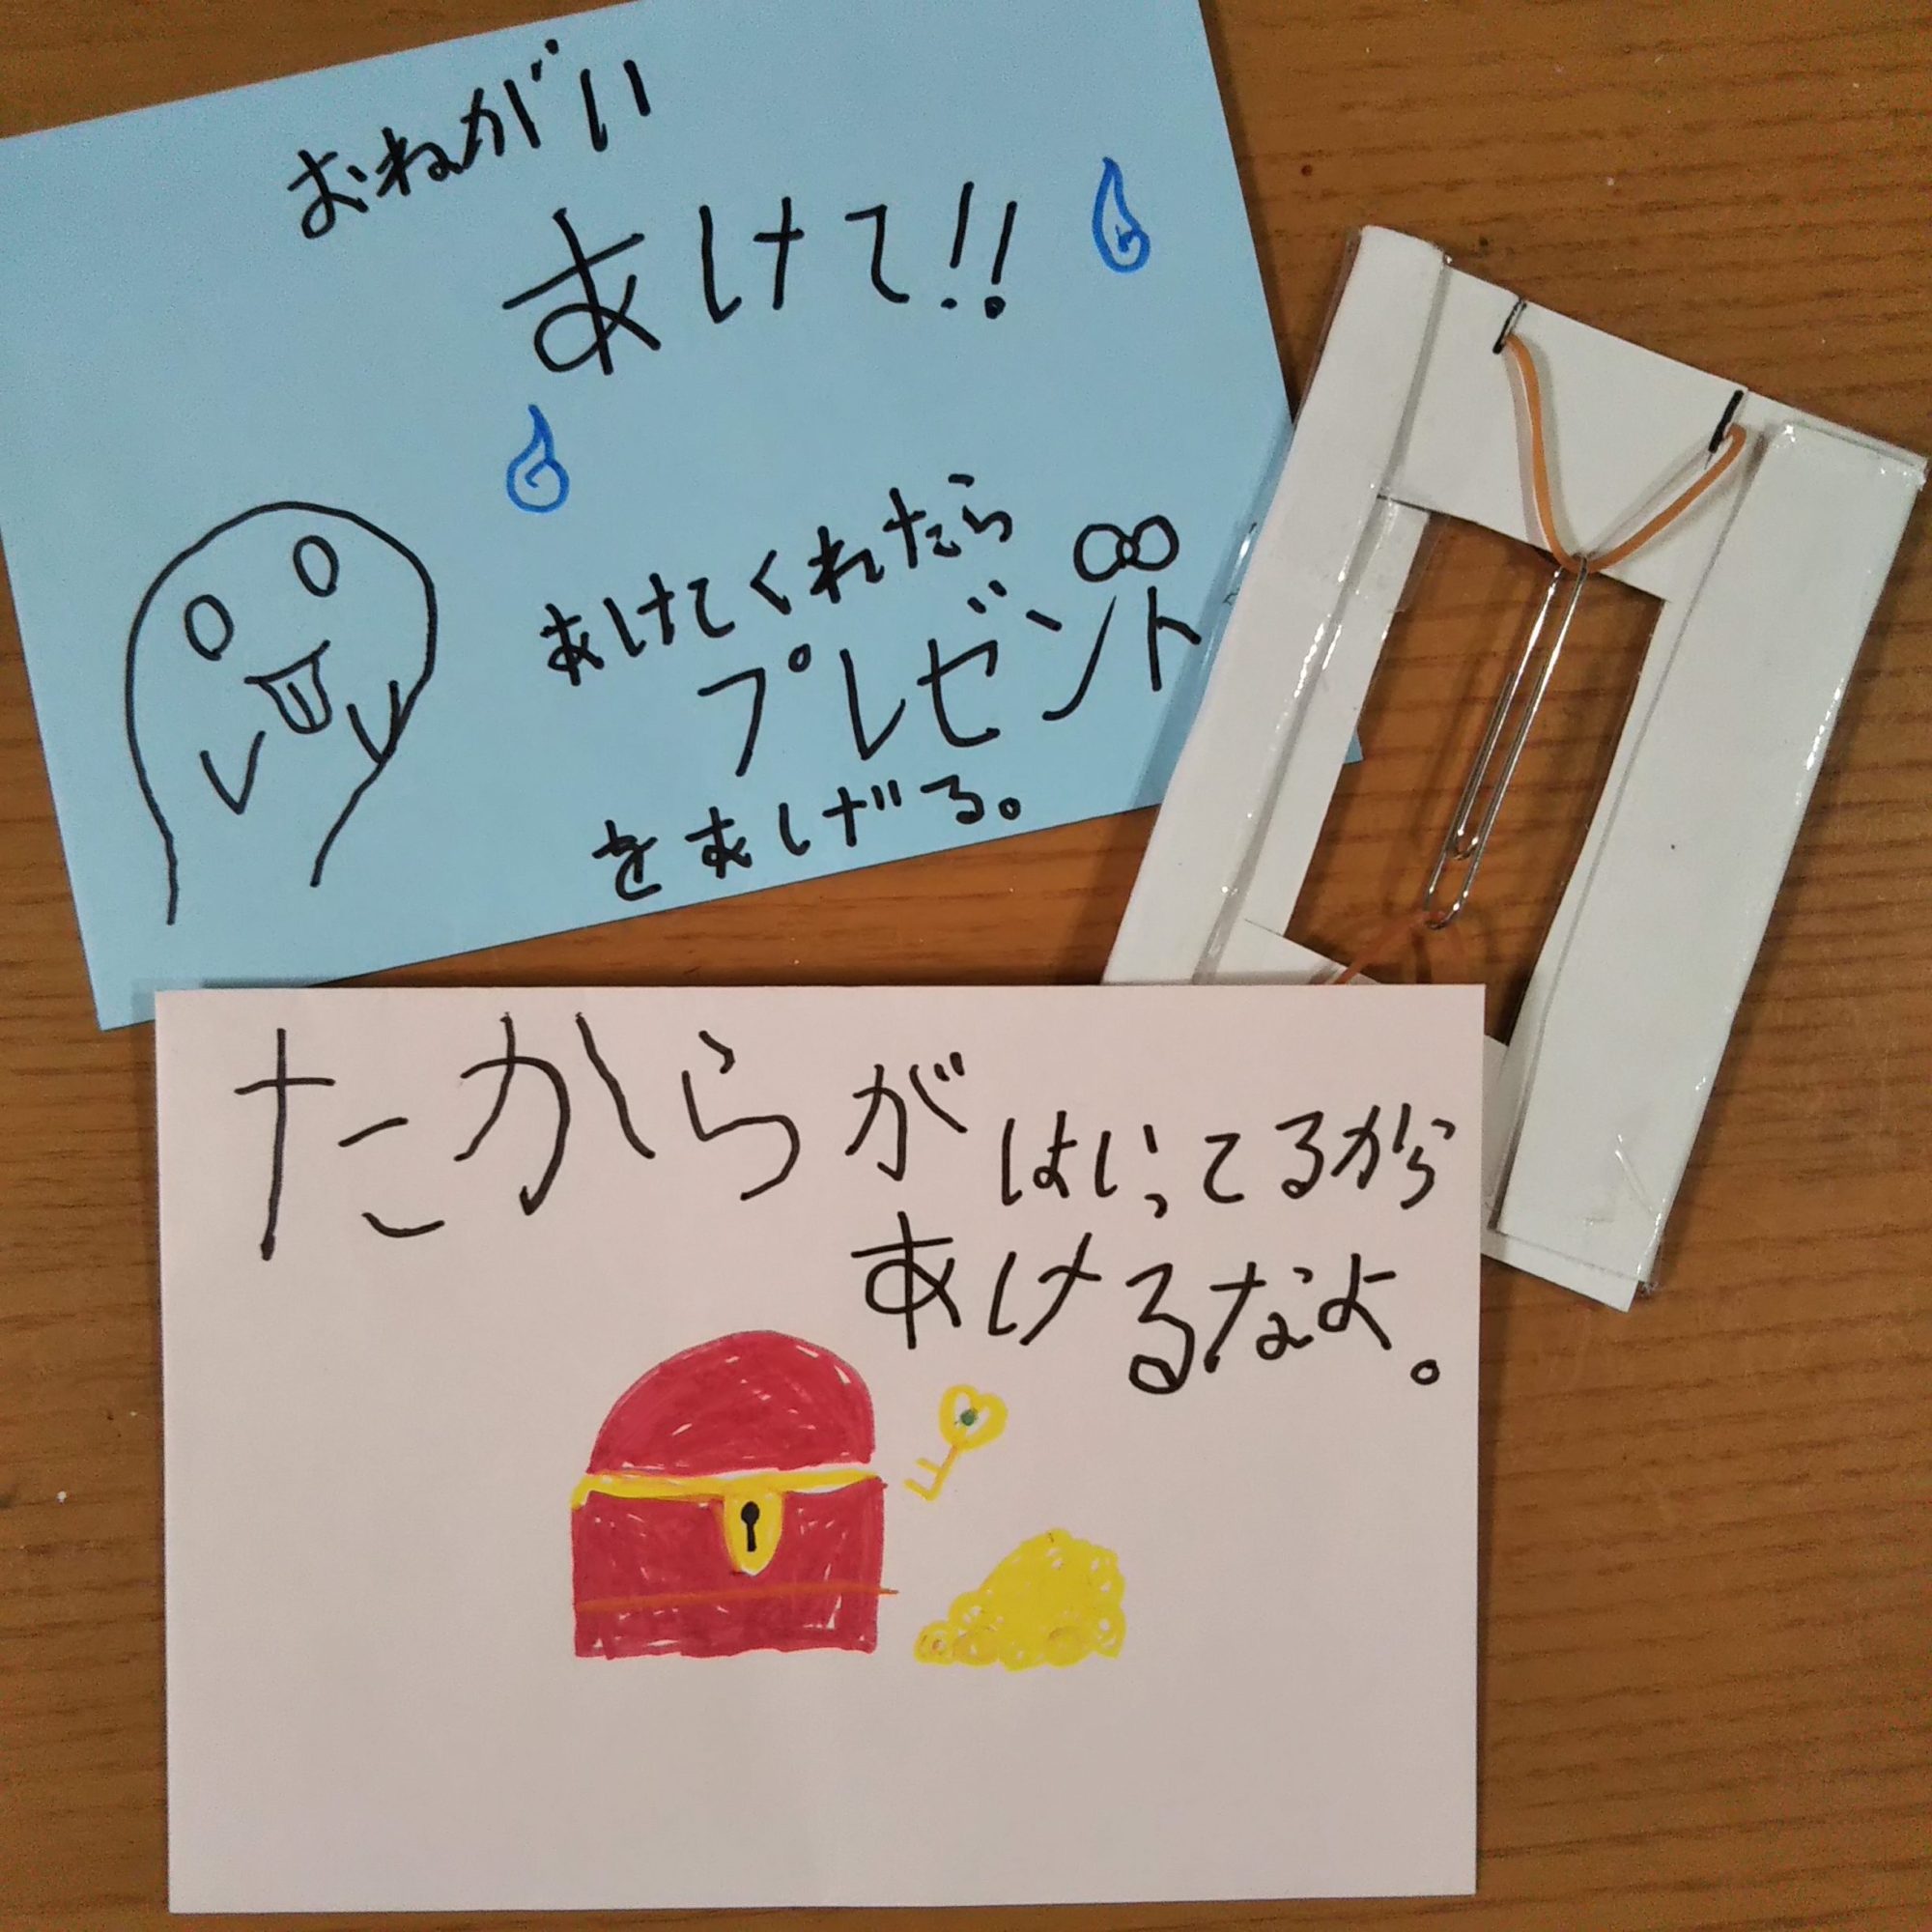 おねがい
あけて!!
あけてくれたら
プレゼント
をあげる。
たからが
はいってるから
あけるなよ。